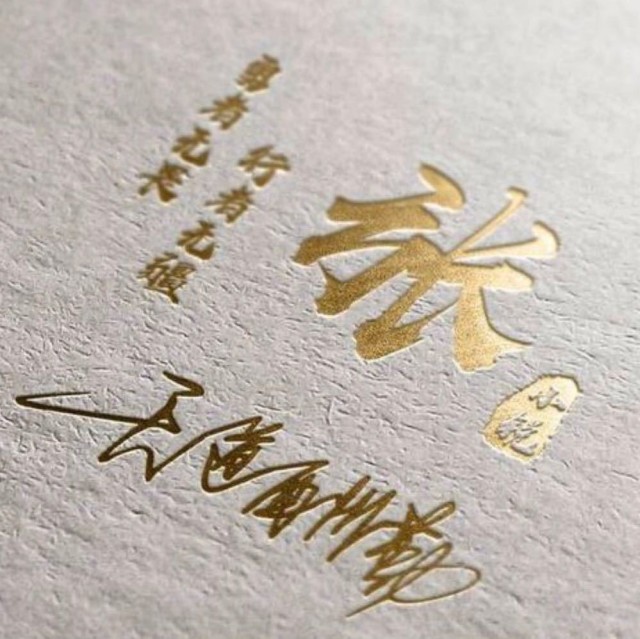 张
行者无疆
勇者无畏
天道酬勤